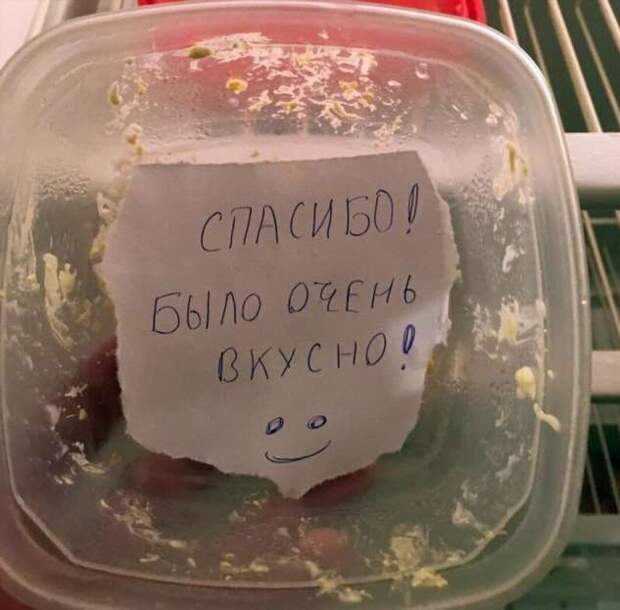 СПАСИБО!
БЫЛО ОЧЕНЬ
ВКУСНО!